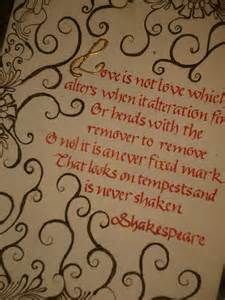 Love is not love which
alters when it alteration fin
Or bends with the
remover to remove
O no! it is an ever fixed mark
That looks on tempests and
is never shaken
Shakespeare